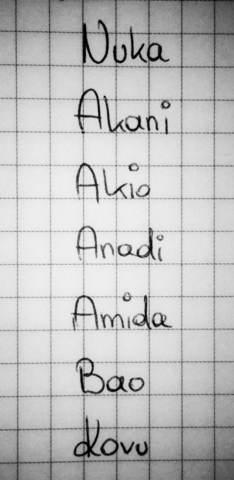 Nuka
Akani
Akio
Anadi
Amida
Bao
Kovu